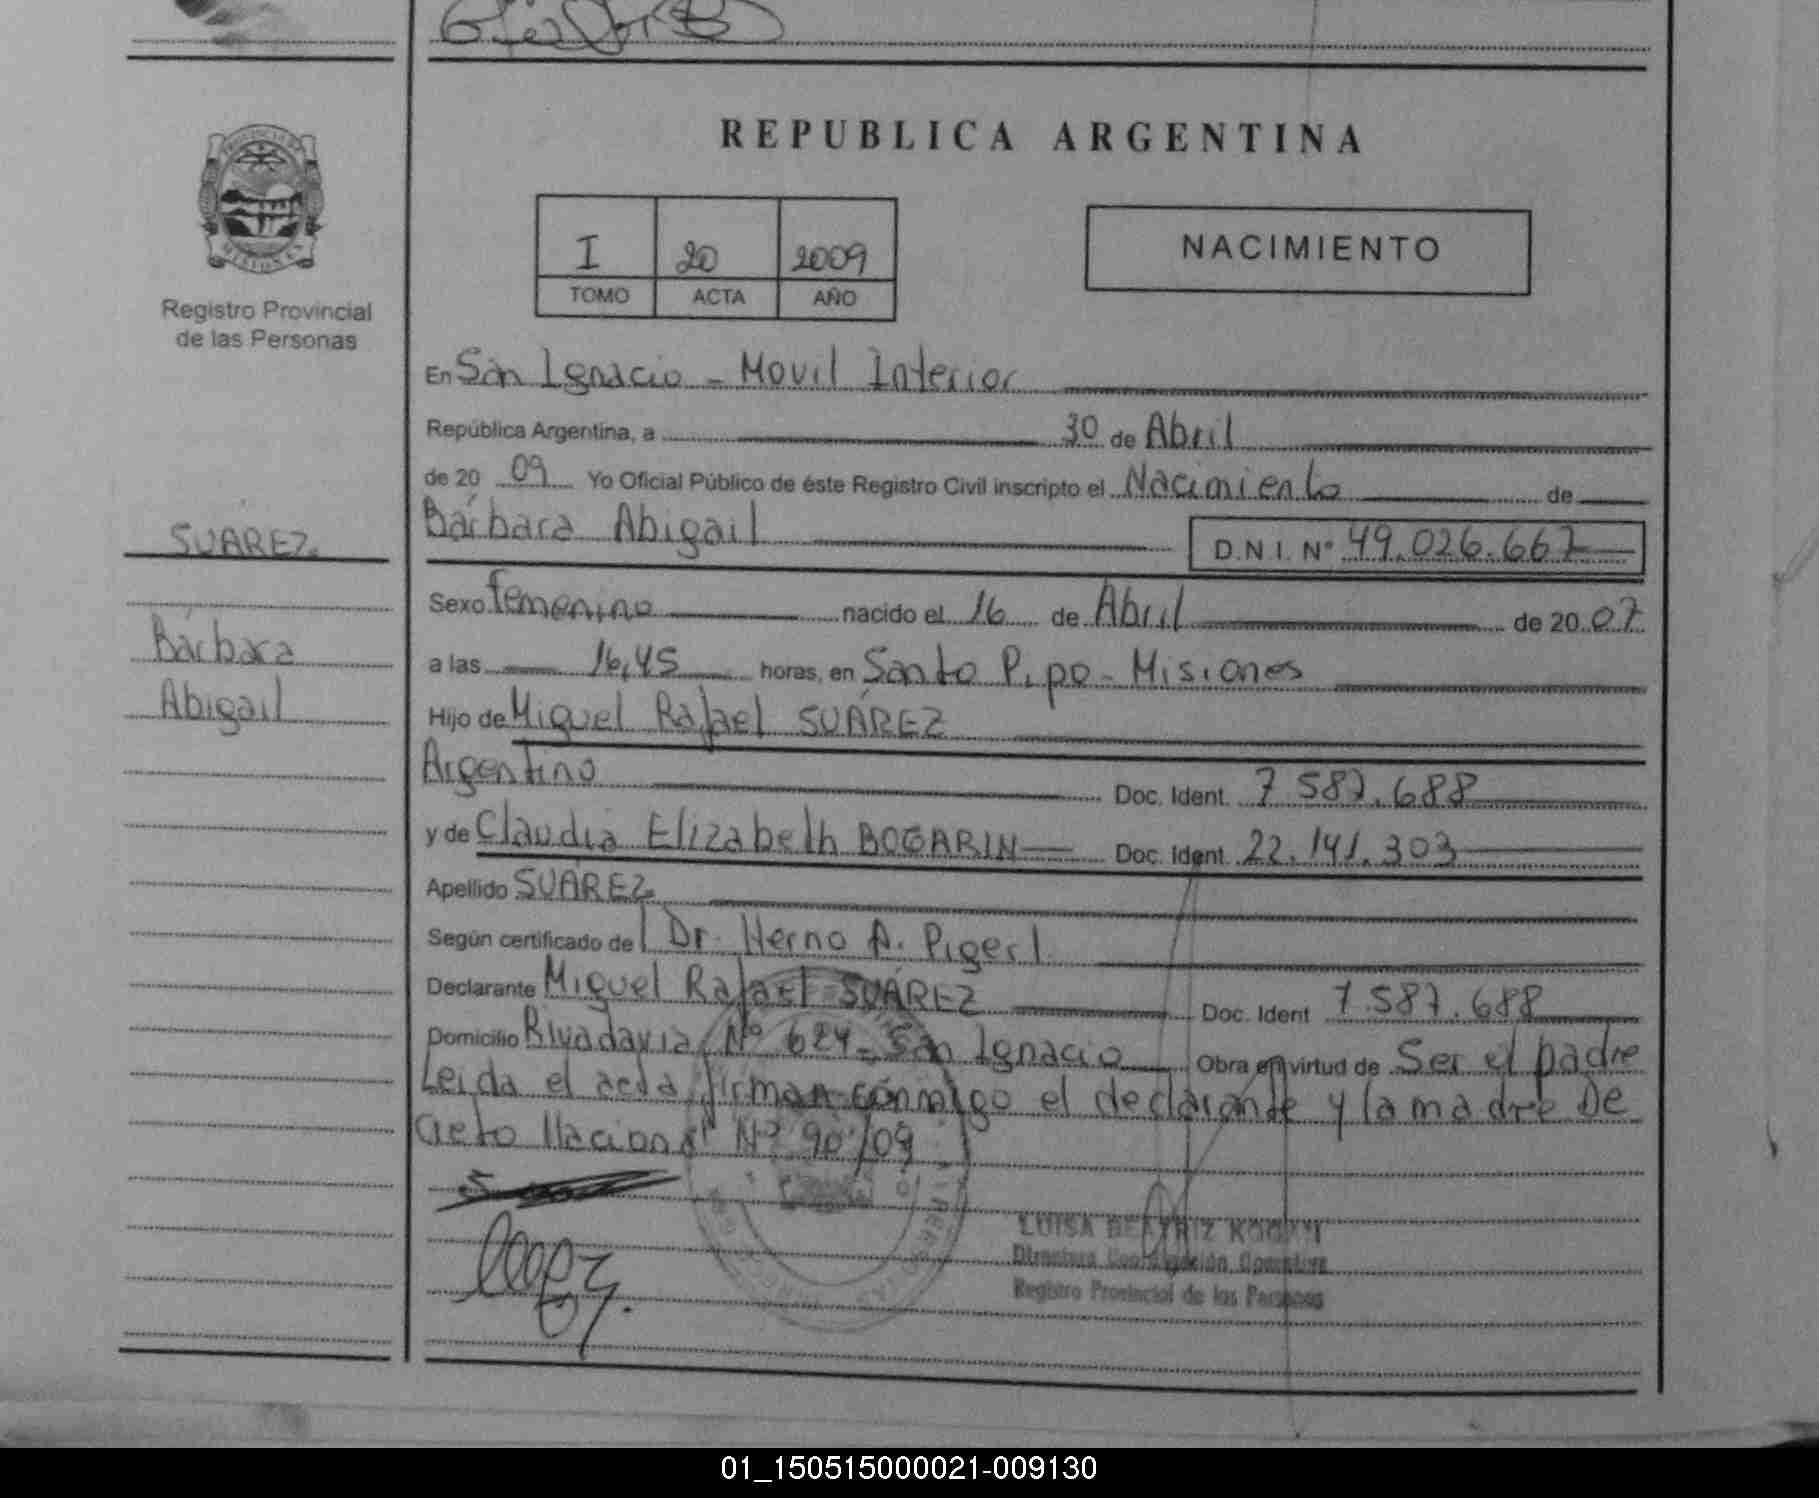 REPUBLICA ARGENTINA
I 20 2009
TOMO ACTA AÑO
NACIMIENTO
Registro Provincial
de las Personas
SUÁREZ
Bárbara
Abigail
En San Ignacio - Movil Interior
República Argentina, a 30 de Abril
de 20 09 Yo Oficial Público de éste Registro Civil inscripto el Nacimiento de
Bárbara Abigail D.N.I. Nº 49.026.667
Sexo femenino nacido el 16 de Abril de 20 07
a las 16,45 horas, en Santo Pipo - Misiones
Hijo de Miguel Rafael SUÁREZ
Argentino Doc. Ident. 7.587.688
y de Claudia Elizabeth BOGARIN Doc. Ident. 22.141.303
Apellido SUÁREZ
Según certificado del Dr. Herno A. Pigerl
Declarante Miguel Rafael SUÁREZ Doc. Ident 7.587.688
Domicilio Rivadavia Nº 624 - San Ignacio Obra en virtud de Ser el padre
Leida el acta firman conmigo el declarante y la madre De
creto Nacional Nº 90/09
LUISA BEATRIZ
Directora Coordinación Operativa
Registro Provincial de las Personas
01_150515000021-009130